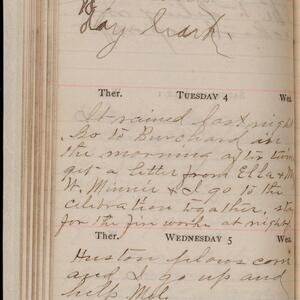 Hay Mark.
Ther. TUESDAY 4 Wea.
It rained last night
Go to Burchard in
the morning after twine
get a letter from Ella & M
W. Minnie & I go to the
celebration together. stay
for the fire works at night
Ther. WEDNESDAY 5 Wea.
Huston plows corn
and I go up and
help Mel.